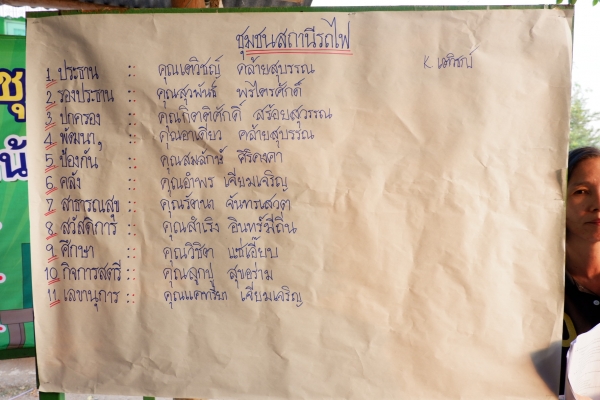 ชุมชนสถานีรถไฟ
K. เตวิชญ์
1. ประธาน :: คุณเตวิชญ์ คล้ายสุบรรณ
2. รองประธาน :: คุณสุวพันธ์ พรไตรศักดิ์
3. ปกครอง :: คุณกิตติศักดิ์ สร้อยสุวรรณ
4. พัฒนา, :: คุณอาเดียว คล้ายสุบรรณ
5. ป้องกัน :: คุณสมลักษ์ ศิริคงคา
6. คลัง :: คุณอำพร เจียมเจริญ
7. สาธารณสุข :: คุณรัตนา จันทรเสวตา
8. สวัสดิการ :: คุณสำเริง อินทร์มีถิ่น
9. ศึกษา :: คุณวิชิตา แซ่เอี๊ยบ
10. กิจการสตรี :: คุณลูกปู สุขอร่าม
11. เลขานุการ :: คุณแคทรียา เจียมเจริญ
ชุ
น้